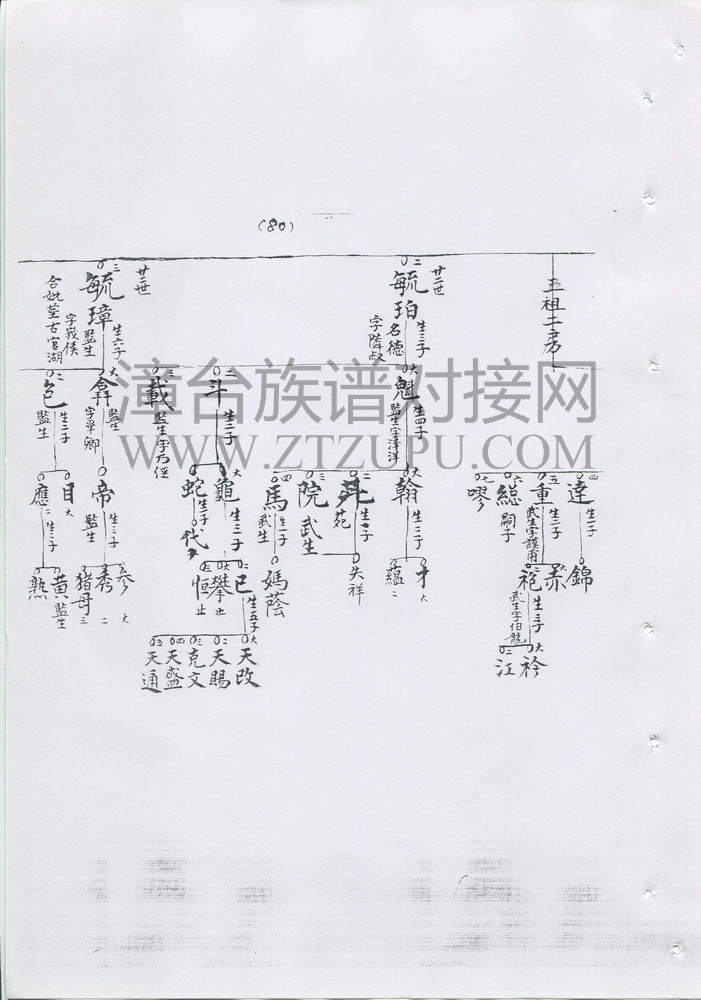 (80)
五祖二房
廿二世
二
毓珀
生三子
名德
字隣叔
廿二世
三
毓璋
生六子
監生
字義侯
合妣塟古官湖
大
魁
生四子
監生字澤洋
二
斗
生二子
三
載
監生字乃徑
大
弇
監生
字畢卿
二
色
生二子
監生
四
達
生一子
五
重
生二子
武生字護甫
六
總
嗣子
七
嘐
大
翰
生二子
二
苑
三
院
武生
四
馬
生一子
武生
大
龜
生三子
蛇
生一子
帝
生三子
監生
目
大
應
二
生二子
錦
袍
生二子
武生字伯龍
才
大
蘊
二
失祥
媽蔭
巳
生五子
攀
止
恒
止
代
大
秀
二
豬母
三
黃
監生
熟
大
衿
二
江
大
天改
二
天賜
三
克文
四
天盛
五
天通
漳台族谱对接网
WWW.ZTZUPU.COM